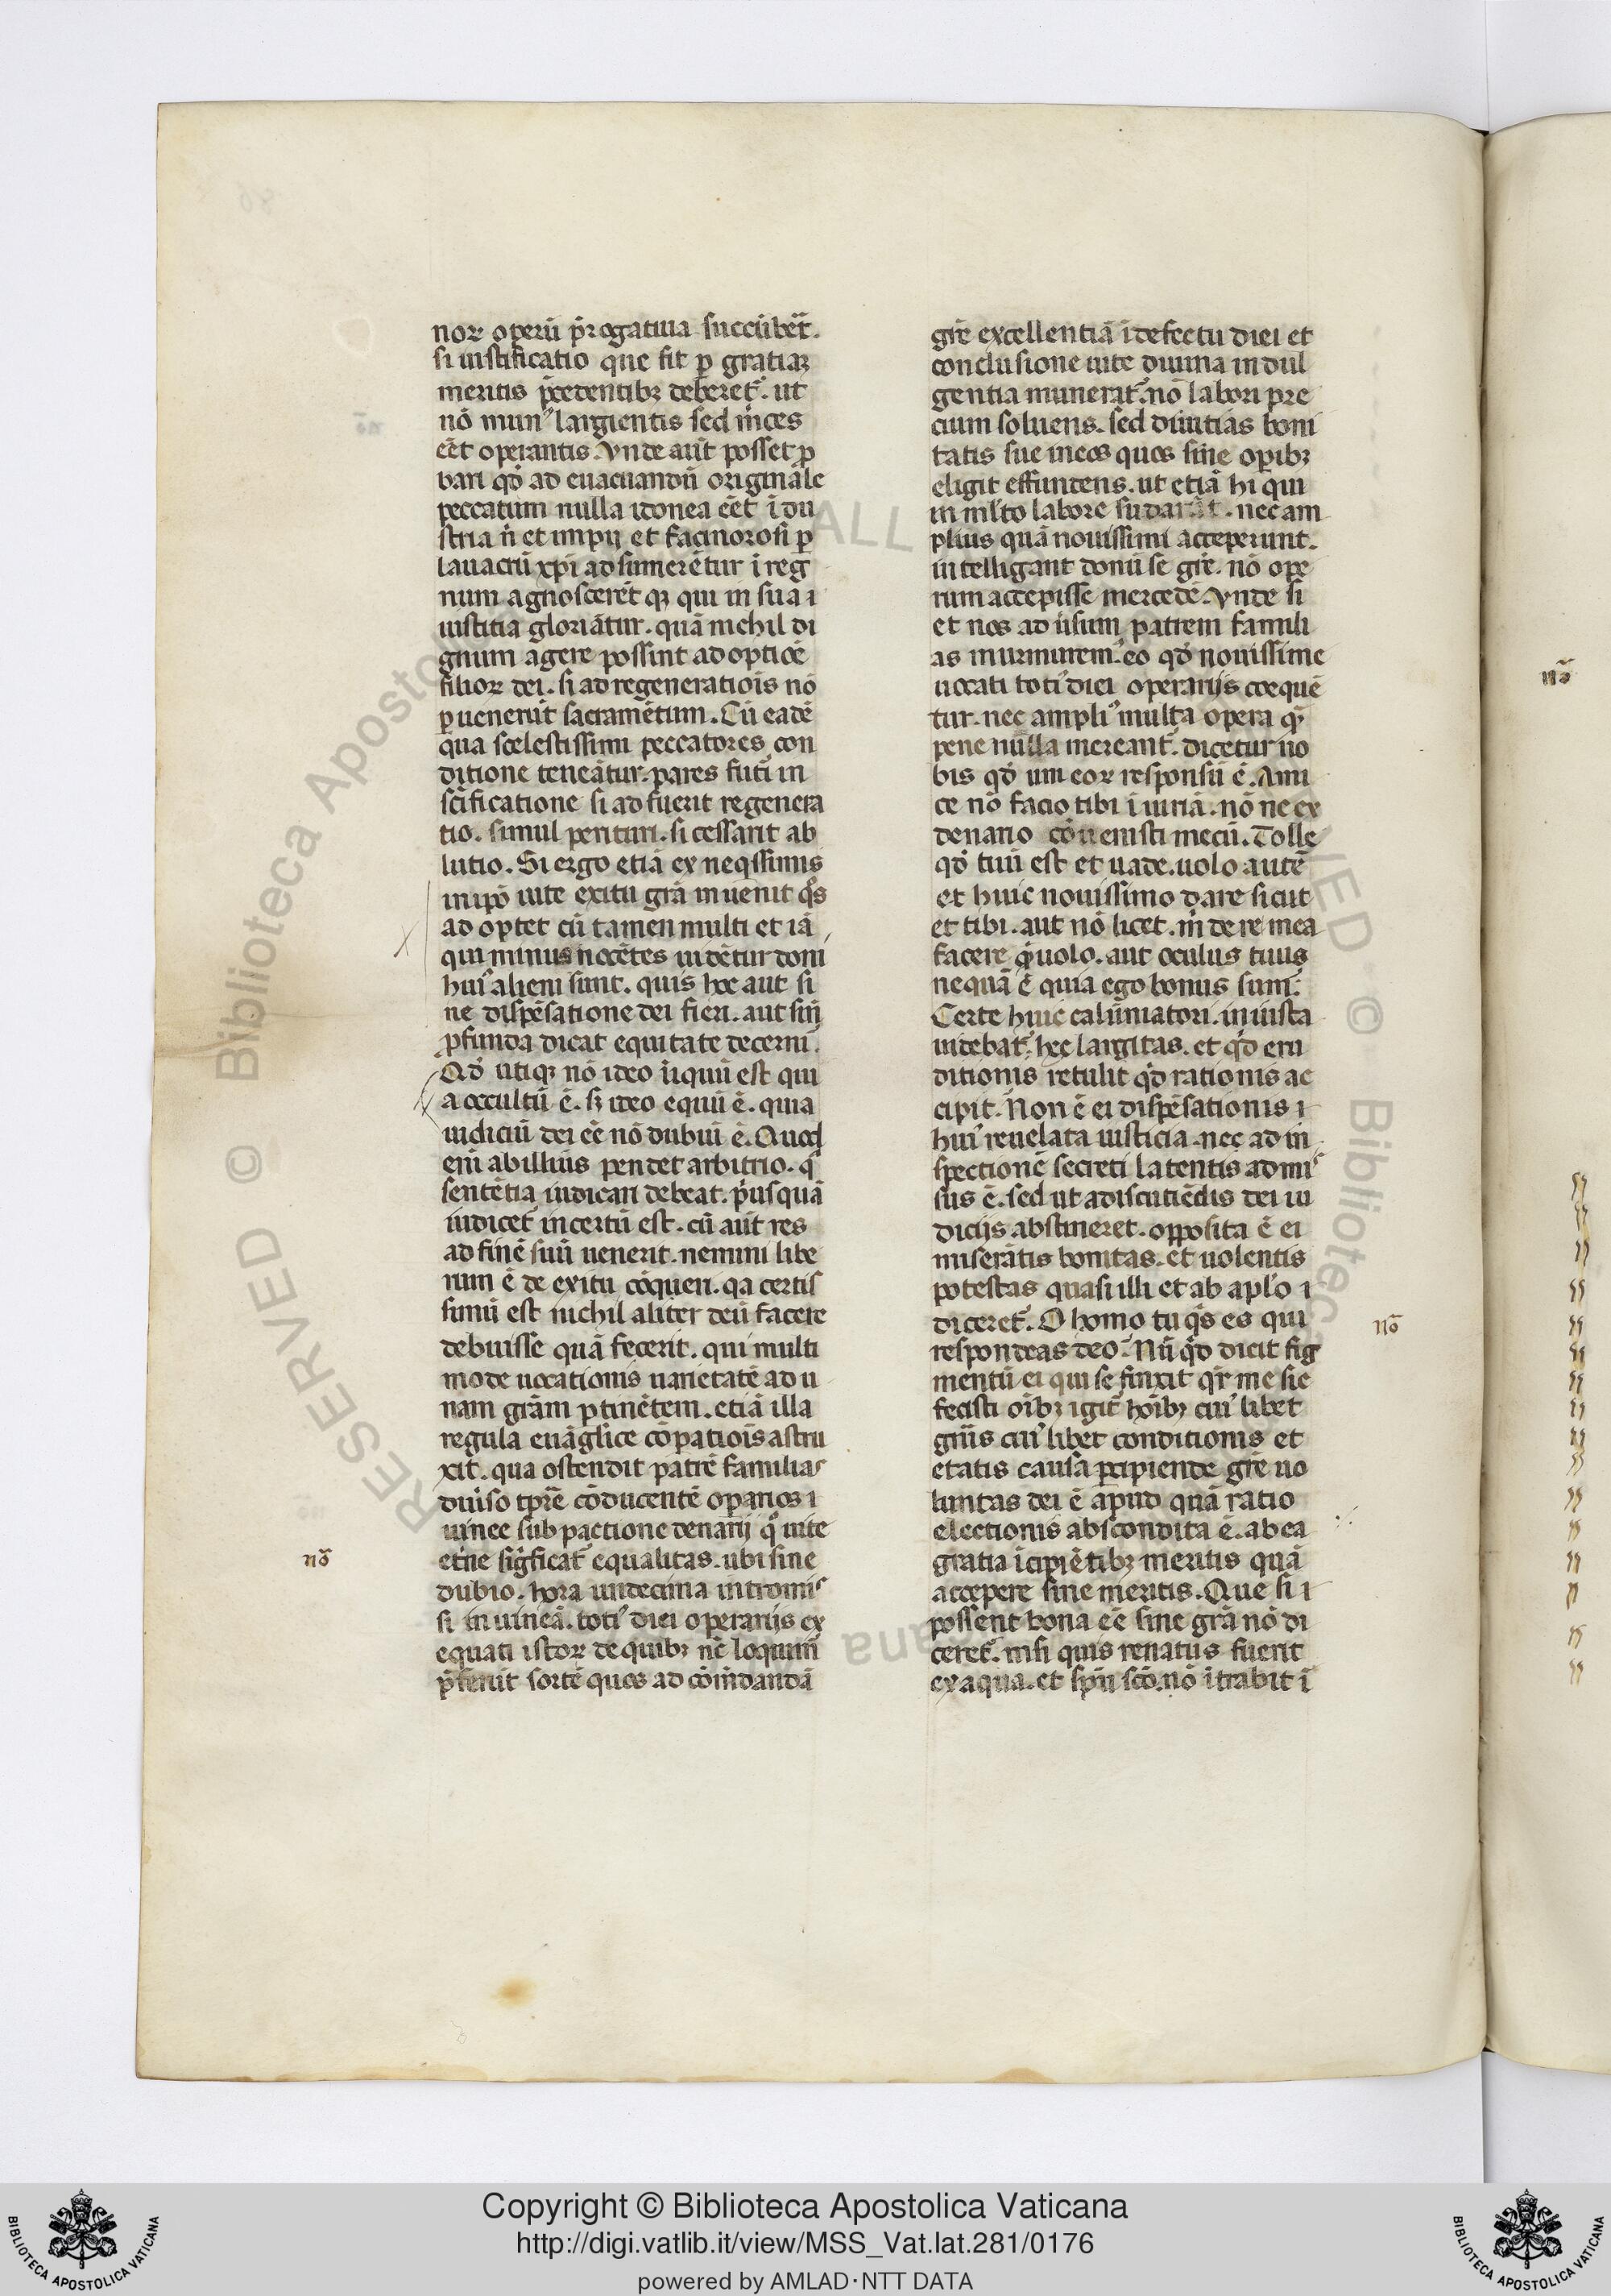 norꝝ operũ p̃rogatiua succũbet᷑.
si iustificatio que fit ꝑ gratiaꝫ
meritis p̃cedentibꝫ deberet᷑. ut
nõ munꝰ largientis sed m̃ces
eẽt operantis. Vnde aũt posset ꝓ
bari qđ ad euacuandũ originale
peccatum nulla idonea eẽt ĩdu
stria ñ et impij et facinorosi ꝑ
lauacrũ xp̃i adsumerẽtur ĩ reg
num agnoscerẽt qꝫ qui in sua i
iustitia gloriãtur. quã nichil di
gnum agere possint adoptiõe
filiorꝝ dei. si ad regeneratiõis nõ
ꝑuenerũt sacramẽtum. Cũ eadẽ
qua scelestissimi peccatores con
ditione teneãtur. pares futĩ in
sc̃ificatione si adfuerit regenera
tio. simul perituri. si cessarit ab
lutio. Si ergo etiã ex neq̃ssimis
in ip̃o uite exitu gr̃a inuenit q̃s
adoptet cũ tamen multi et iã
qui minus nocẽtes uidẽtur doni
huiꝰ alieni sunt. quis hoc aut si
ne dispẽsatione dei fieri. aut sin̄
ꝓfunda dicat equitate decerni.
Qđ utiqꝫ nõ ideo ĩiquũ est qui
a occultũ ẽ. sꝫ ideo equũ ẽ. quia
iudiciũ dei eẽ nõ dubiũ ẽ. Quod
eni᷑ ab illius pendet arbitrio. q̃
sentẽtia iudicari debeat. p̃usquã
iudicet᷑ incertũ est. cũ aũt res
ad finẽ suũ uenerit. nemini libe
rum ẽ de exitu cõqueri. q̃a certis
simũ est nichil aliter deũ facere
debuisse quã fecerit. qui multi
mode uocationis uarietatẽ ad u
nam gr̃am ꝑtinẽtem. etiã illa
regula euãglice cõparatiõis astru
xit. qua ostendit patrẽ familias
diuiso tp̃re cõducentẽ oꝑarios i
uinee sub pactione denarij q̃ uite
et̃ne sig̃ficat᷑ equalitas. ubi sine
dubio. hora undecima intromis
si in uineã. totiꝰ diei operarijs ex
equati istorꝝ de quibꝫ nc̃ loquim᷑
p̃ferũt sortẽ quos ad cõm̃dandã
gr̃e excellentiã ĩ defectu diei et
conclusione uite diuina indul
gentia munerat᷑. nõ labori pre
cium soluens. sed diuitias boni
tatis sue in eos quos sine oꝑibꝫ
eligit effundens. ut etiã hi qui
in ml̃to labore sudarãt. nec am
plius quã nouissimi acceperunt.
intelligant donũ se gr̃e. nõ ope
rum accepisse mercedẽ. Vnde si
et nos aduersum patrem famili
as murmuremꝰ. eo qđ nouissime
uocati totiꝰ diei operarijs coequẽ
tur. nec ampliꝰ multa opera q̃
pene nulla mereant᷑. dicetur no
bis qđ uni eorꝝ responsũ ẽ. Ami
ce nõ facio tibi ĩiuriã. nõne ex
denario cõuenisti mecũ. Tolle
qđ tuũ est et uade. uolo autẽ
et huic nouissimo dare sicut
et tibi. aut nõ licet. m̃ de re mea
facere q̃ uolo. aut oculus tuus
nequã ẽ quia ego bonus sum.
Certe huic calũniatori. iniusta
uidebat᷑. hec largitas. et qd̃ eru
ditionis retulit qd̃ rationis ac
cipit. Non ẽ ei dispẽsationis i
huiꝰ reuelata iusticia. nec ad in
spectionẽ secreti latentis admis
sus ẽ. sed ut a discutiẽdis dei iu
dicijs abstineret. opposita ẽ ei
miserãtis bonitas. et uolentis
potestas quasi illi et ab apl̃o i
diceret᷑. O homo tu q̃s es qui
respondeas deo. Nũqd̃ dicit fig
mentũ ei qui se finxit qr̃ me sic
fecisti oĩbꝫ igit᷑ hoĩbꝫ cuiꝰlibet
gñis cuiꝰlibet conditionis et
etatis causa ꝑcipiende gr̃e uo
luntas dei ẽ apud quã ratio
electionis abscondita ẽ. ab ea
gratia ĩcipiẽtibꝫ meritis quã
accepere sine meritis. Que si i
possent bona eẽ sine gr̃a nõ di
ceret᷑. nisi quis renatus fuerit
ex aqua. et sp̃u sc̃o. nõ ĩtrabit ĩ
nõ
nõ
nõ
Copyright © Biblioteca Apostolica Vaticana
http://digi.vatlib.it/view/MSS_Vat.lat.281/0176
powered by AMLAD·NTT DATA
BIBLIOTECA APOSTOLICA VATICANA
BIBLIOTECA APOSTOLICA VATICANA